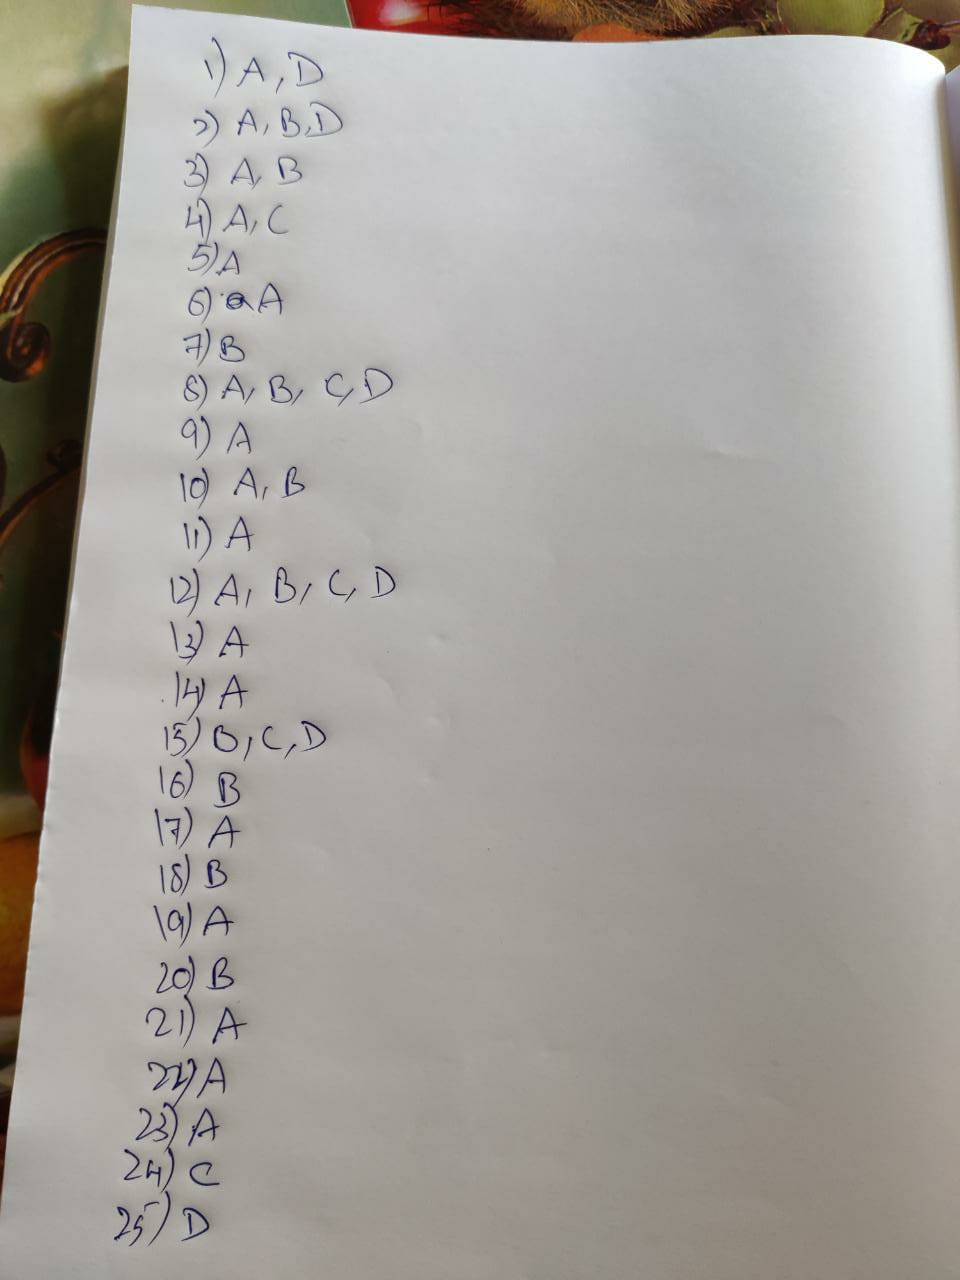 1) A, D
2) A, B, D
3) A, B
4) A, C
5) A
6) A
7) B
8) A, B, C, D
9) A
10) A, B
11) A
12) A, B, C, D
13) A
14) A
15) B, C, D
16) B
17) A
18) B
19) A
20) B
21) A
22) A
23) A
24) C
25) D